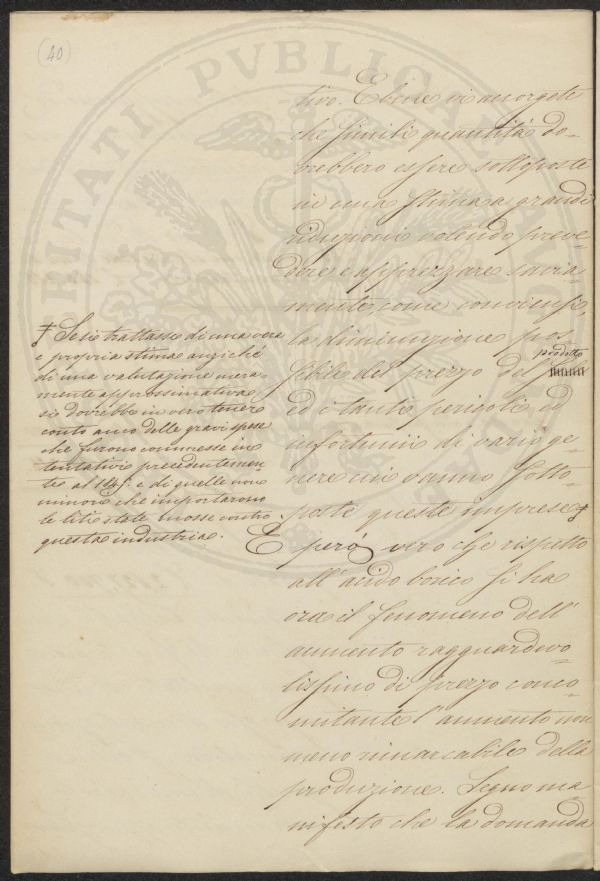 (40)
tivo. Ebbene vi accorgete
che simili quantità do-
vrebbero essere sottoposte
in una stima a grandi
riduzioni volendo preve-
dere e apprezzare savia-
mente, come conviensi,
la diminuzione pos-
sibile del prezzo del prodotto
ed i tanti pericoli, ed
infortunii di vario ge-
nere cui vanno sotto-
poste queste imprese ‡
E però vero che rispetto
all'acido borico si ha
ora il fenomeno dell'
aumento ragguardevo-
lissimo di prezzo conco-
mitante l'aumento non
meno rimarcabile della
produzione. Segno ma-
nifesto che la domanda
‡ Se si trattasse di una vera
e propria stima anziché
di una valutazione mera-
mente approssimativa
si dovrebbe in vero tenere
conto anco delle gravi spese
che furono commesse in
tentativi precedentemen-
te al 184 e di quelle non
minori che importarono
le liti state mosse contro
questa industria.
RITATI PVBLICAE